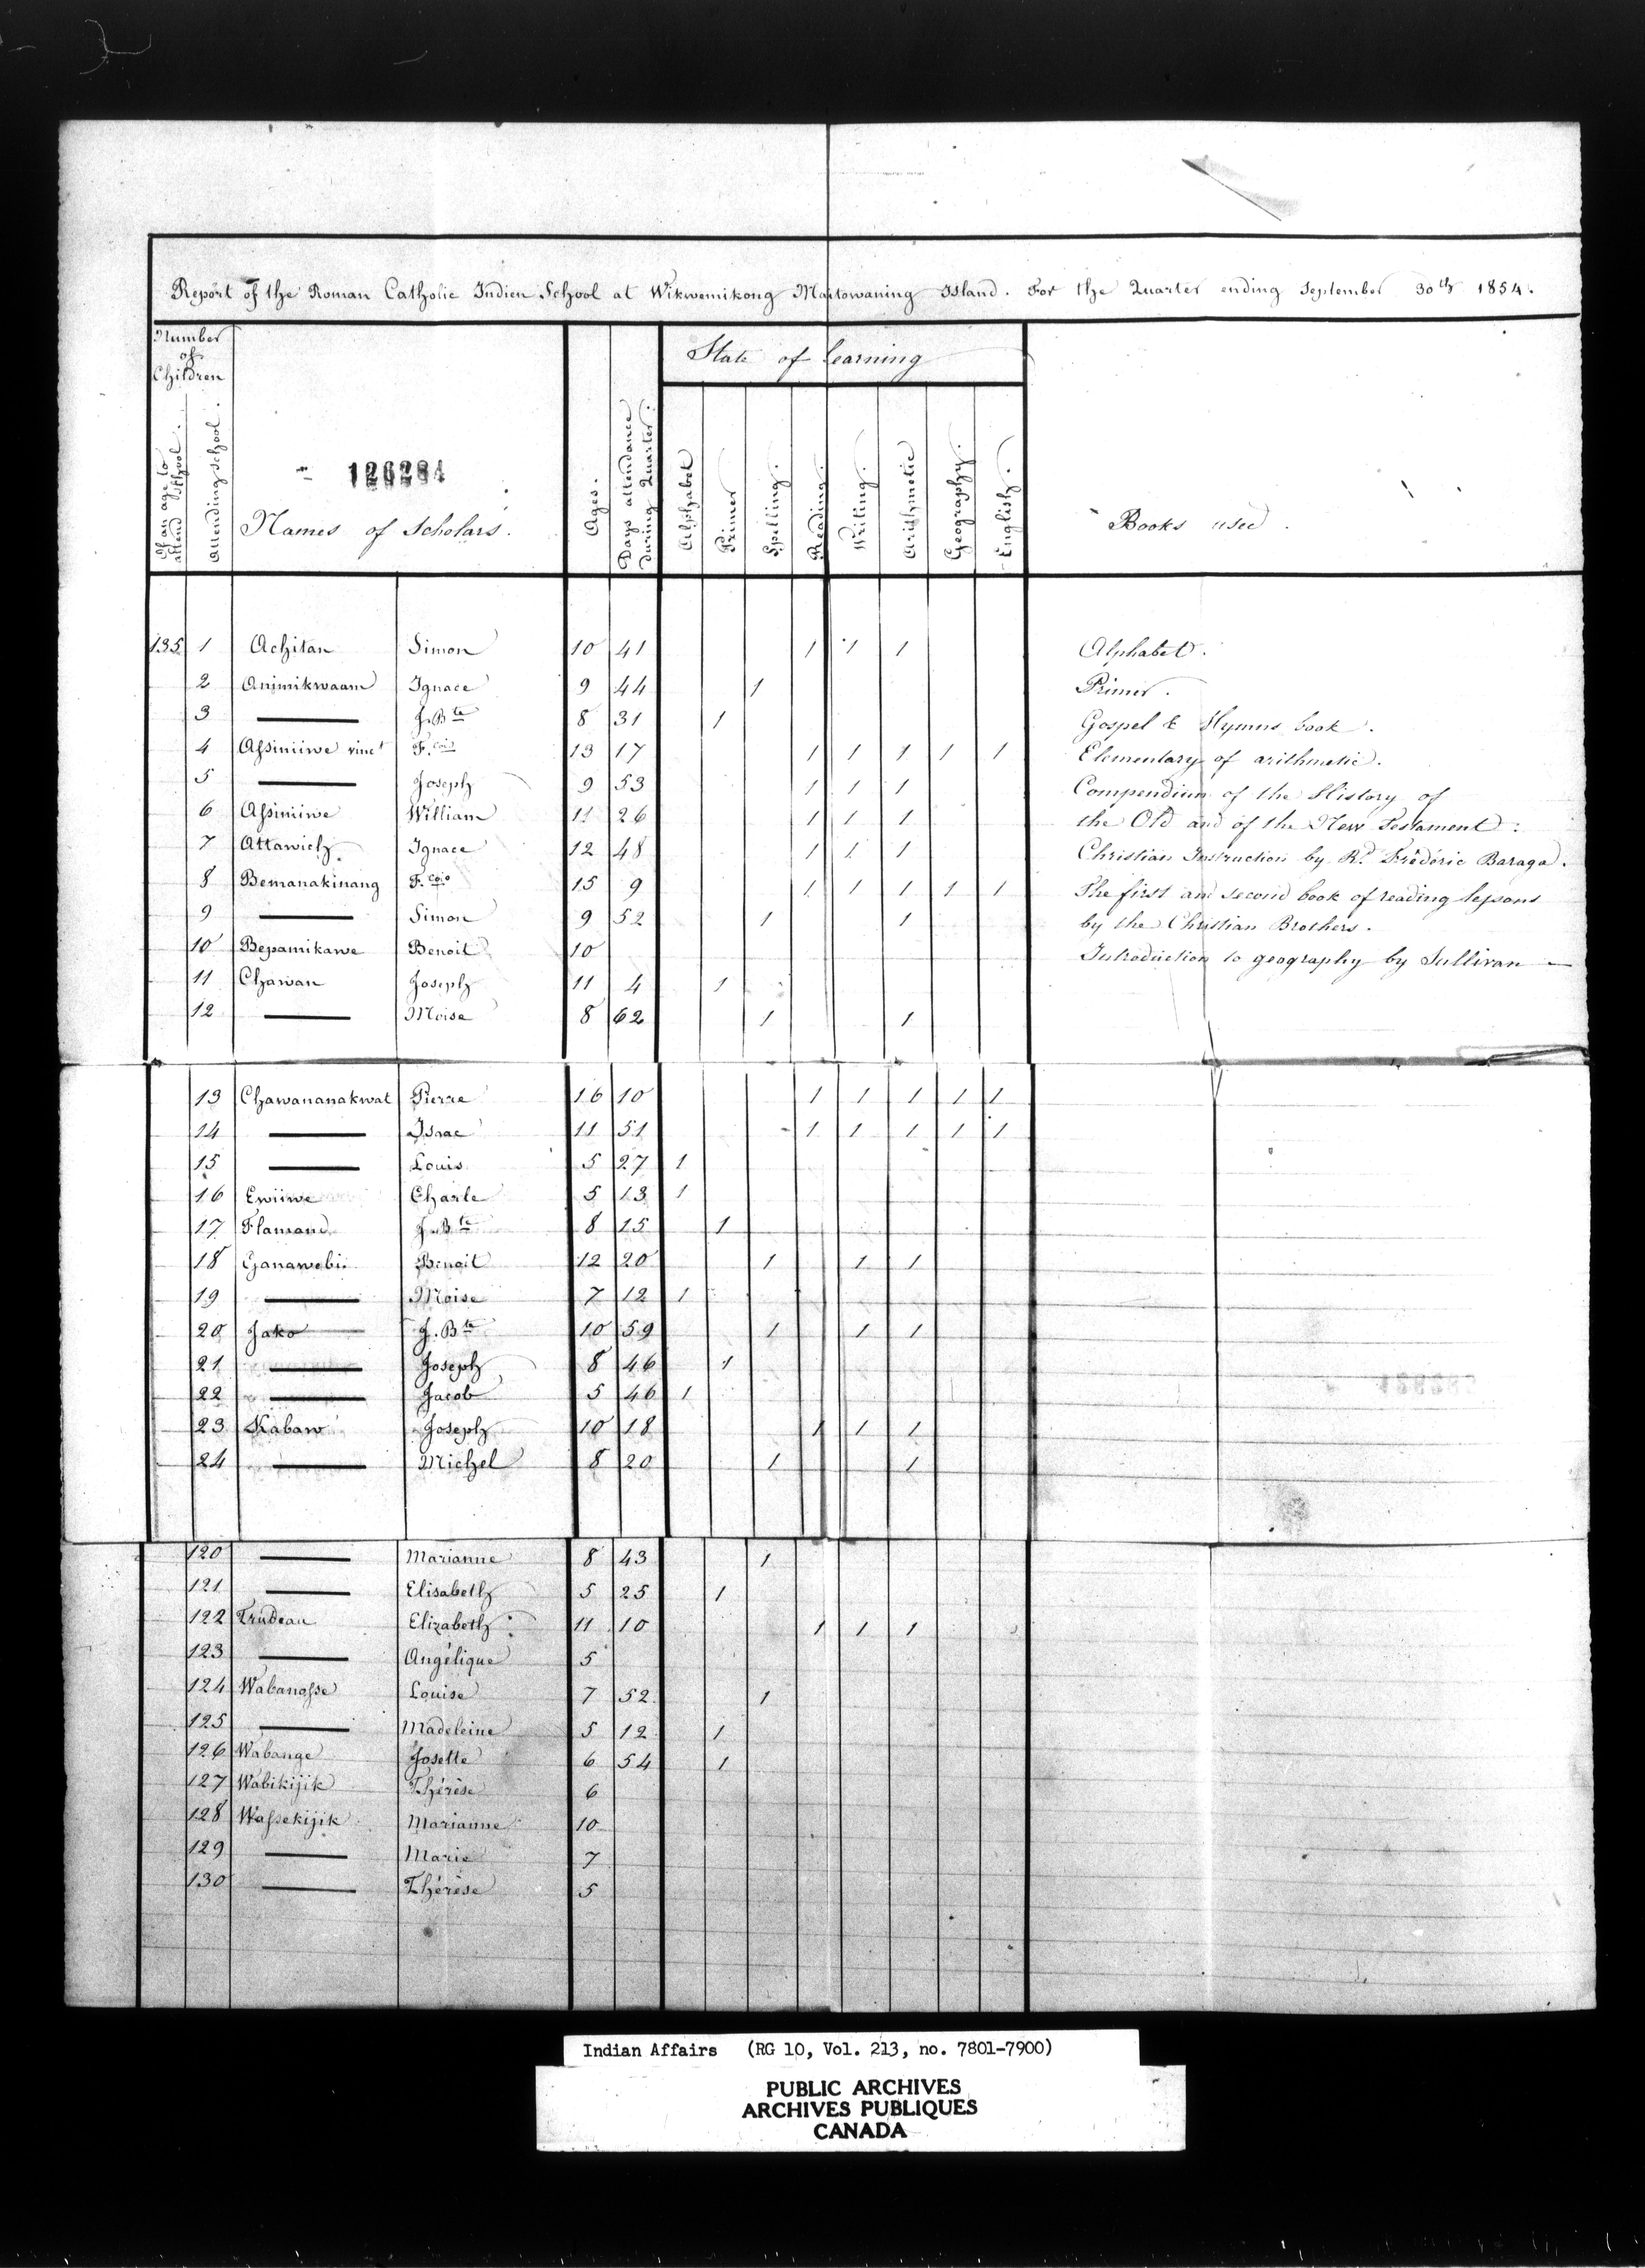 Report of the Roman Catholic Indien School at Wikwemikong Maitowaning Island. For the Quarter ending September 30th 1854.
Number of Children
Of an age to attend School.
Attending school.
126284
Names of Scholars.
Ages.
Days attendance during Quarter.
State of learning
Alphabet
Primer
Spelling.
Reading.
Writing.
Arithmetic
Geography.
English.
Books used.
135 1 Achitan Simon 10 41 1 1 1 Alphabet.
2 Animikwaam Ignace 9 44 1 Primer.
3 —— J. Bte 8 31 1 Gospel & Hymns book.
4 Assiniiwe vinct F.cois 13 17 1 1 1 1 1 Elementary of arithmetic.
5 —— Joseph 9 53 1 1 1 Compendium of the History of
6 Assiniiwe William 11 26 1 1 1 the Old and of the New Testament:
7 Attawich Ignace 12 48 1 1 1 Christian Instruction by Rd Frédéric Baraga.
8 Bemanakinang F.cois 15 9 1 1 1 1 1 The first and second book of reading lessons
9 —— Simon 9 52 1 1 by the Christian Brothers.
10 Bepamikawe Benoit 10 Introduction to geography by Sullivan —
11 Chawan Joseph 11 4 1
12 —— Moise 8 62 1 1
13 Chawananakwat Pierre 16 10 1 1 1 1 1
14 —— Isaac 11 51 1 1 1 1 1
15 —— Louis 5 27 1
16 Ewiiwe Charle 5 13 1
17 Flamand J. Bte 8 15 1
18 Ganawebi Benoit 12 20 1 1 1
19 —— Moise 7 12 1
20 Jako J. Bte 10 59 1 1 1
21 —— Joseph 8 46 1
22 —— Jacob 5 46 1
23 Kabaw Joseph 10 18 1 1 1
24 —— Michel 8 20 1 1
120 —— Marianne 8 43 1
121 —— Elisabeth 5 25 1
122 Trudeau Elizabeth 11 10 1 1 1
123 —— Angélique 5
124 Wabanosse Louise 7 52 1
125 —— Madeleine 5 12 1
126 Wabange Josette 6 54 1
127 Wabikijik Thérèse 6
128 Wassekijik Marianne 10
129 —— Marie 7
130 —— Thérèse 5
Indian Affairs (RG 10, Vol. 213, no. 7801-7900)
PUBLIC ARCHIVES
ARCHIVES PUBLIQUES
CANADA